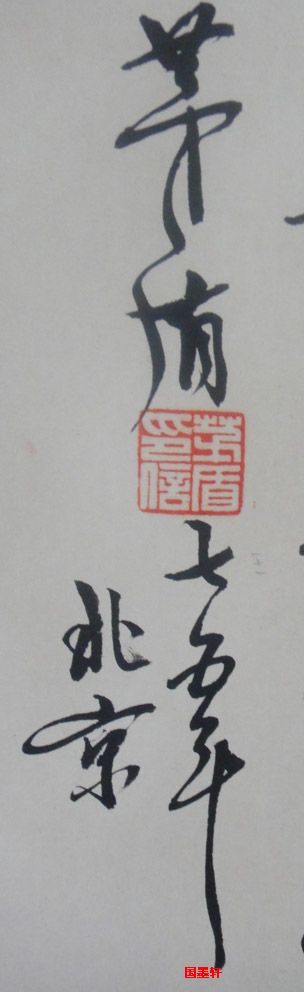 茅盾
茅盾印信
七五年
北京
国墨轩